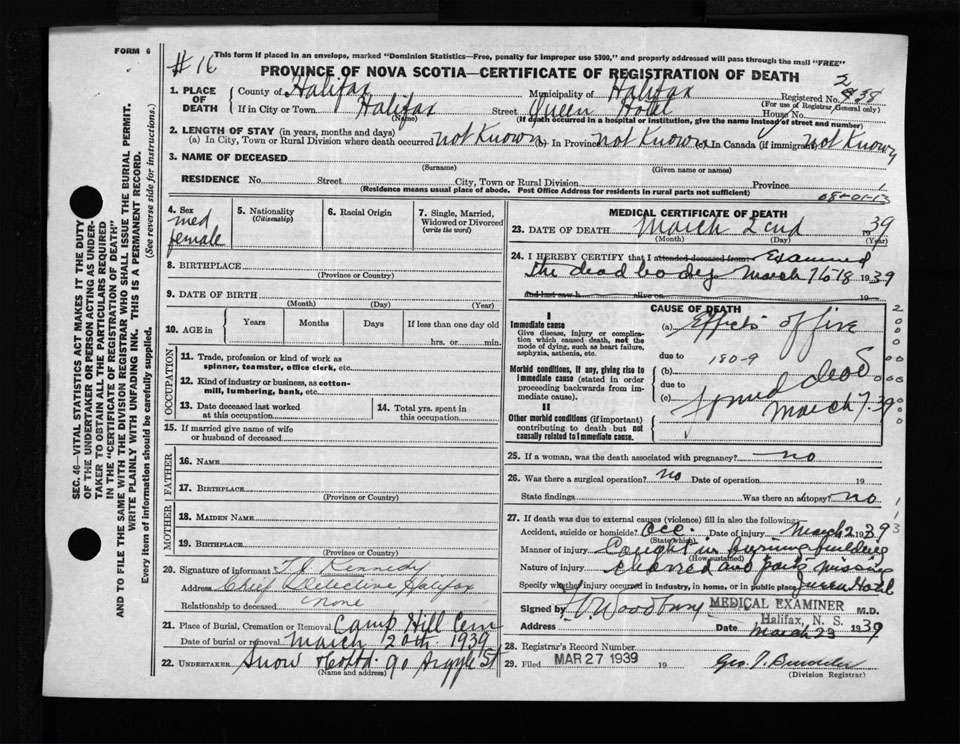 FORM 6
This form if placed in an envelope, marked "Dominion Statistics—Free, penalty for improper use $300," and properly addressed will pass through the mail "FREE"
# 16
PROVINCE OF NOVA SCOTIA—CERTIFICATE OF REGISTRATION OF DEATH
1. PLACE OF DEATH
County of Halifax Municipality of Halifax Registered No.
(For use of Registrar General only)
If in City or Town Halifax Street Queen Hotel House No.
(Name) (If death occurred in a hospital or institution, give the name instead of street and number)
2. LENGTH OF STAY (in years, months and days)
(a) In City, Town or Rural Division where death occurred not Known (b) In Province not Known (c) In Canada (if immigrant) not Known
3. NAME OF DECEASED
(Surname) (Given name or names)
RESIDENCE No. Street City, Town or Rural Division Province
(Residence means usual place of abode. Post Office Address for residents in rural parts not sufficient)
68-01-13
SEC. 46—VITAL STATISTICS ACT MAKES IT THE DUTY
OF THE UNDERTAKER OR PERSON ACTING AS UNDER-
TAKER TO OBTAIN ALL THE PARTICULARS REQUIRED
IN THE "CERTIFICATE OF REGISTRATION OF DEATH"
AND TO FILE THE SAME WITH THE DIVISION REGISTRAR WHO SHALL ISSUE THE BURIAL PERMIT.
WRITE PLAINLY WITH UNFADING INK. THIS IS A PERMANENT RECORD.
Every item of information should be carefully supplied. (See reverse side for instructions.)
4. Sex
female
5. Nationality
(Citizenship)
6. Racial Origin
7. Single, Married,
Widowed or Divorced
(write the word)
8. BIRTHPLACE
(Province or Country)
9. DATE OF BIRTH
(Month) (Day) (Year)
10. AGE in
Years Months Days If less than one day old
hrs. or min.
OCCUPATION
11. Trade, profession or kind of work as
spinner, teamster, office clerk, etc.
12. Kind of industry or business, as cotton-
mill, lumbering, bank, etc.
13. Date deceased last worked
at this occupation
14. Total yrs. spent in
this occupation
15. If married give name of wife
or husband of deceased
FATHER
16. NAME
17. BIRTHPLACE
(Province or Country)
MOTHER
18. MAIDEN NAME
19. BIRTHPLACE
(Province or Country)
20. Signature of informant Kennedy
Address Chief Detective Halifax
Relationship to deceased none
21. Place of Burial, Cremation or Removal Camp Hill Cem
Date of burial or removal March 20th 1939
22. UNDERTAKER Snow & Co Ltd. 90 Argyle St
(Name and address)
MEDICAL CERTIFICATE OF DEATH
23. DATE OF DEATH March 2nd 1939
(Month) (Day) (Year)
24. I HEREBY CERTIFY that I attended deceased from: Examined
the dead body March 7 to 18 1939
and last saw h alive on 19
CAUSE OF DEATH
I
Immediate cause
Give disease, injury or complica-
tion which caused death, not the
mode of dying, such as heart failure,
asphyxia, asthenia, etc.
Morbid conditions, if any, giving rise to
immediate cause (stated in order
proceeding backwards from im-
mediate cause).
II
Other morbid conditions (if important)
contributing to death but not
causally related to immediate cause.
(a) Effects of fire
due to 180-9
(b)
due to
(c) found dead
March 7.39
25. If a woman, was the death associated with pregnancy? no
26. Was there a surgical operation? no Date of operation 19
State findings Was there an autopsy? no
27. If death was due to external causes (violence) fill in also the following:
Accident, suicide or homicide? acc. Date of injury March 2 1939
(State which)
Manner of injury Caught in burning building
(How sustained)
Nature of injury charred and parts missing
Specify whether injury occurred in industry, in home, or in public place Queen Hotel
Signed by Woodbury MEDICAL EXAMINER M.D.
Address Halifax, N. S. Date March 23 1939
28. Registrar's Record Number
29. Filed MAR 27 1939 19
(Division Registrar)